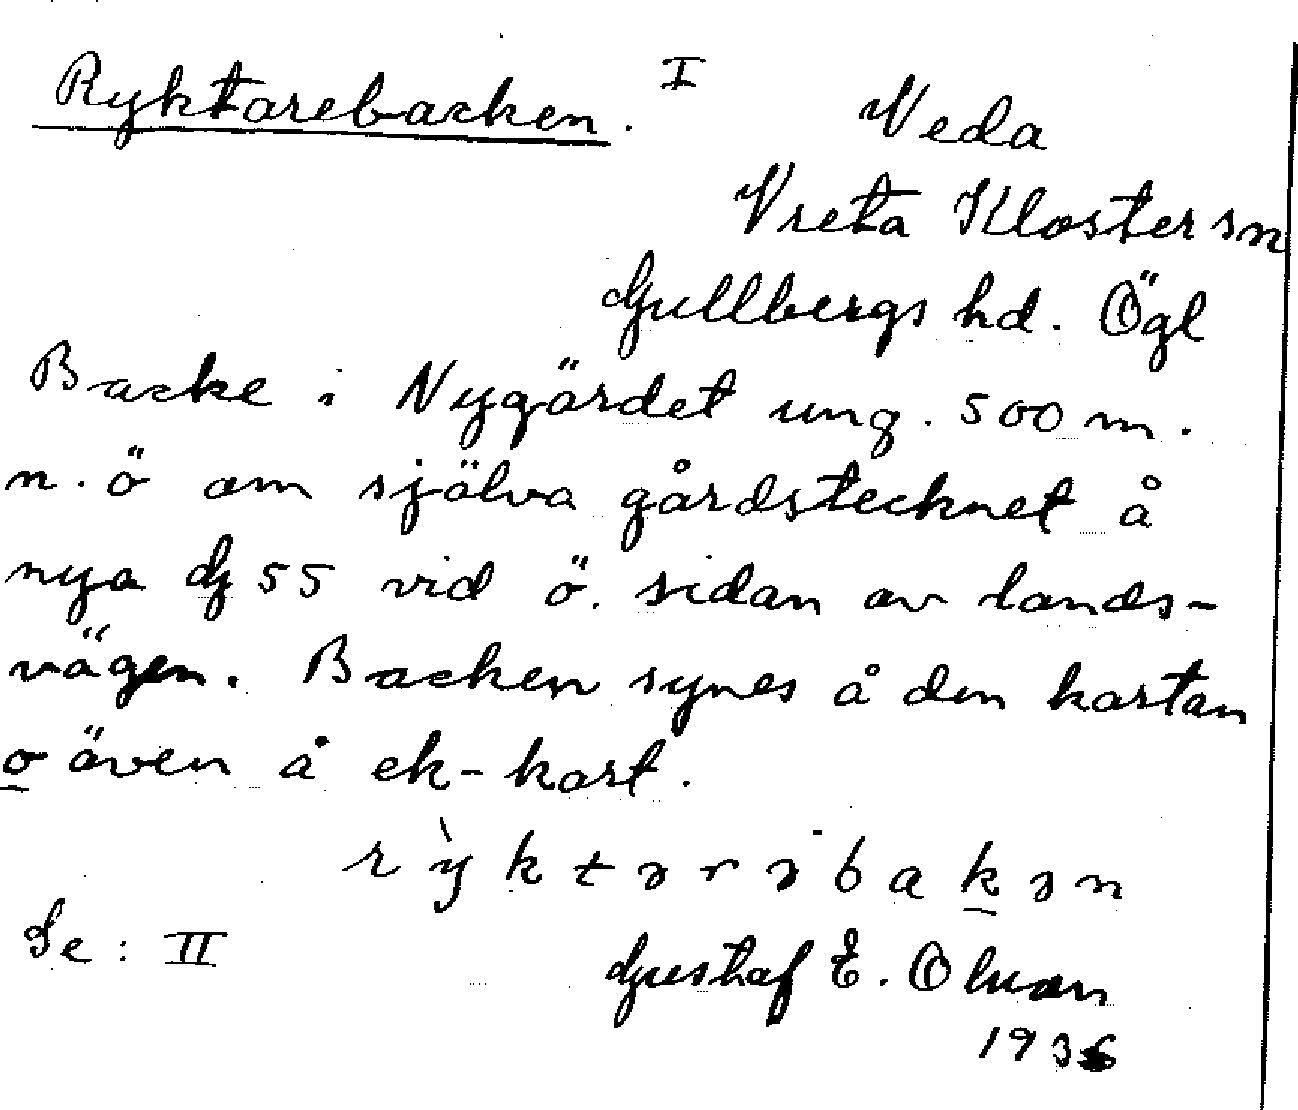 Ryktarebacken. I
Veda
Vreta Kloster sn
Gullbergs hd. Ögl
Backe i Nygärdet ung. 500 m.
n. ö om själva gårdstecknet å
nya G 55 vid ö. sidan av lands-
vägen. Backen synes å den kartan
o även å ek-kart.
rỳktərəbak̲ən
Se: II
Gustaf E. Olsson
1936